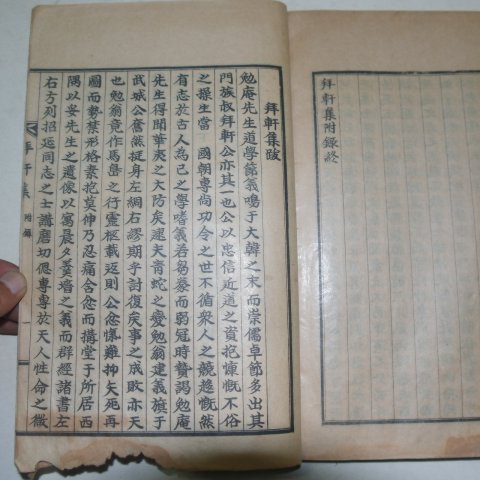 拜軒集附錄終
拜軒集跋
勉庵先生道學節義鳴于大韓之末而崇儒卓節多出其
門族叔拜軒公亦其一也公以忠信近道之資抱慷慨不俗
之操生當 國朝專尚功令之世不循衆人之競趨慨然
有志於古人爲己之學嗜義若芻豢而弱冠時贄謁勉庵
先生得聞華夷之大防矣逮夫青蛇之變勉翁建義旅于
武城公奮然挺身左綢右繆期乎討復矣事之成敗亦天
也勉翁竟作馬島之行靈柩載返則公愈悵難抑矣死再
圖而勢禁形格素抱莫伸乃忍痛含忿而搆堂于所居西
隅以妥先生之遺像以寓晨夕羹墻之義而群經諸書左
右方列招延同志之士講磨切偲專專於天人性命之微
拜軒集 附錄